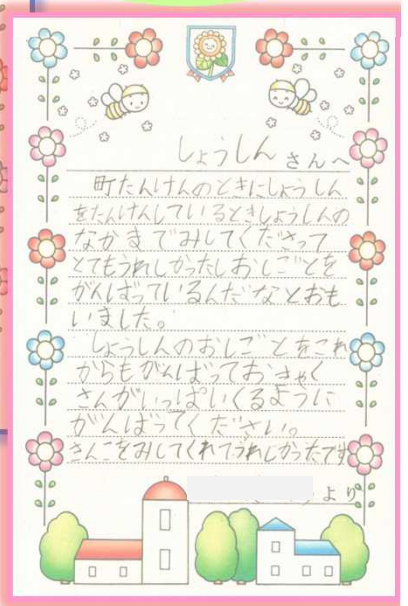 しょうしん さんへ
町たんけんのときにしょうしん
をたんけんしているときしょうしんの
なかまでみしてくださって
とてもうれしかったしおしごとを
がんばっているんだなとおも
いました。
しょうしんのおしごとをこれ
からもがんばっておきゃく
さんがいっぱいくるように
がんばってください。
さんこをみしてくれてうれしかったです
より